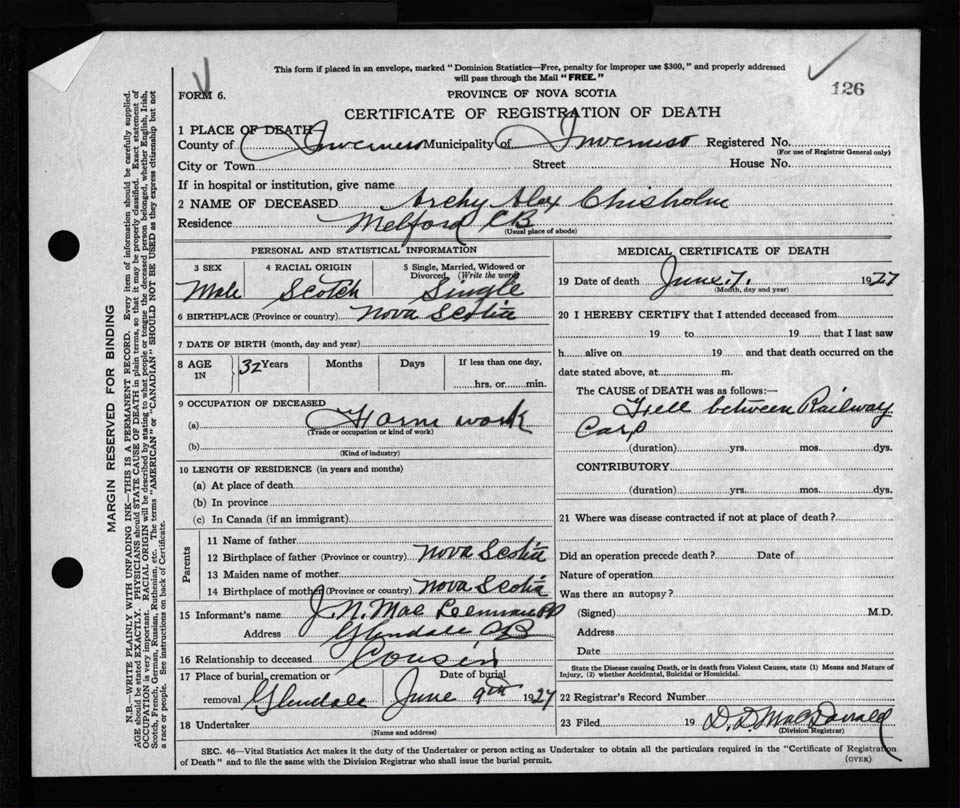 This form if placed in an envelope, marked "Dominion Statistics—Free, penalty for improper use $300," and properly addressed
will pass through the Mail "FREE."
126
FORM 6.
PROVINCE OF NOVA SCOTIA
CERTIFICATE OF REGISTRATION OF DEATH
1 PLACE OF DEATH—
County of Inverness Municipality of Inverness Registered No.
(For use of Registrar General only)
City or Town Street House No.
If in hospital or institution, give name
2 NAME OF DECEASED Archy Alex Chisholm
Residence Melford CB
(Usual place of abode)
PERSONAL AND STATISTICAL INFORMATION
3 SEX 4 RACIAL ORIGIN 5 Single, Married, Widowed or
Divorced (Write the word)
Male Scotch Single
6 BIRTHPLACE (Province or country) Nova Scotia
7 DATE OF BIRTH (month, day and year)
8 AGE IN 32 Years Months Days If less than one day,
hrs. or min.
9 OCCUPATION OF DECEASED
(a) Farm work
(Trade or occupation or kind of work)
(b)
(Kind of industry)
10 LENGTH OF RESIDENCE (in years and months)
(a) At place of death
(b) In province
(c) In Canada (if an immigrant)
Parents
11 Name of father
12 Birthplace of father (Province or country) Nova Scotia
13 Maiden name of mother
14 Birthplace of mother (Province or country) Nova Scotia
15 Informant's name J. N. Mac
Address Glendale CB
16 Relationship to deceased Cousin
17 Place of burial, cremation or Date of burial
removal Glendale June 9th 1927
18 Undertaker
(Name and address)
MEDICAL CERTIFICATE OF DEATH
19 Date of death June 7. 1927
(Month, day and year)
20 I HEREBY CERTIFY that I attended deceased from
19 to 19 that I last saw
h alive on 19 and that death occurred on the
date stated above, at m.
The CAUSE of DEATH was as follows:—
Fell between Railway
Cars
(duration) yrs. mos. dys.
CONTRIBUTORY
(duration) yrs. mos. dys.
21 Where was disease contracted if not at place of death?
Did an operation precede death? Date of
Nature of operation
Was there an autopsy?
(Signed) M.D.
Address
Date
State the Disease causing Death, or in death from Violent Causes, state (1) Means and Nature of
Injury, (2) whether Accidental, Suicidal or Homicidal.
22 Registrar's Record Number
23 Filed 19 D. D. MacDonald
(Division Registrar)
SEC. 46—Vital Statistics Act makes it the duty of the Undertaker or person acting as Undertaker to obtain all the particulars required in the "Certificate of Registration
of Death" and to file the same with the Division Registrar who shall issue the burial permit.
(OVER)
MARGIN RESERVED FOR BINDING
N.B.—WRITE PLAINLY WITH UNFADING INK—THIS IS A PERMANENT RECORD. Every item of information should be carefully supplied.
AGE should be stated EXACTLY. PHYSICIANS should STATE CAUSE OF DEATH in plain terms, so that it may be properly classified. Exact statement of
OCCUPATION is very important. RACIAL ORIGIN will be described by stating to what people or tongue the deceased person belonged, whether English, Irish,
Scotch, French, German, Russian, Ruthenian, etc. The terms "AMERICAN" or "CANADIAN" SHOULD NOT BE USED as they express citizenship but not
a race or people. See instructions on back of Certificate.